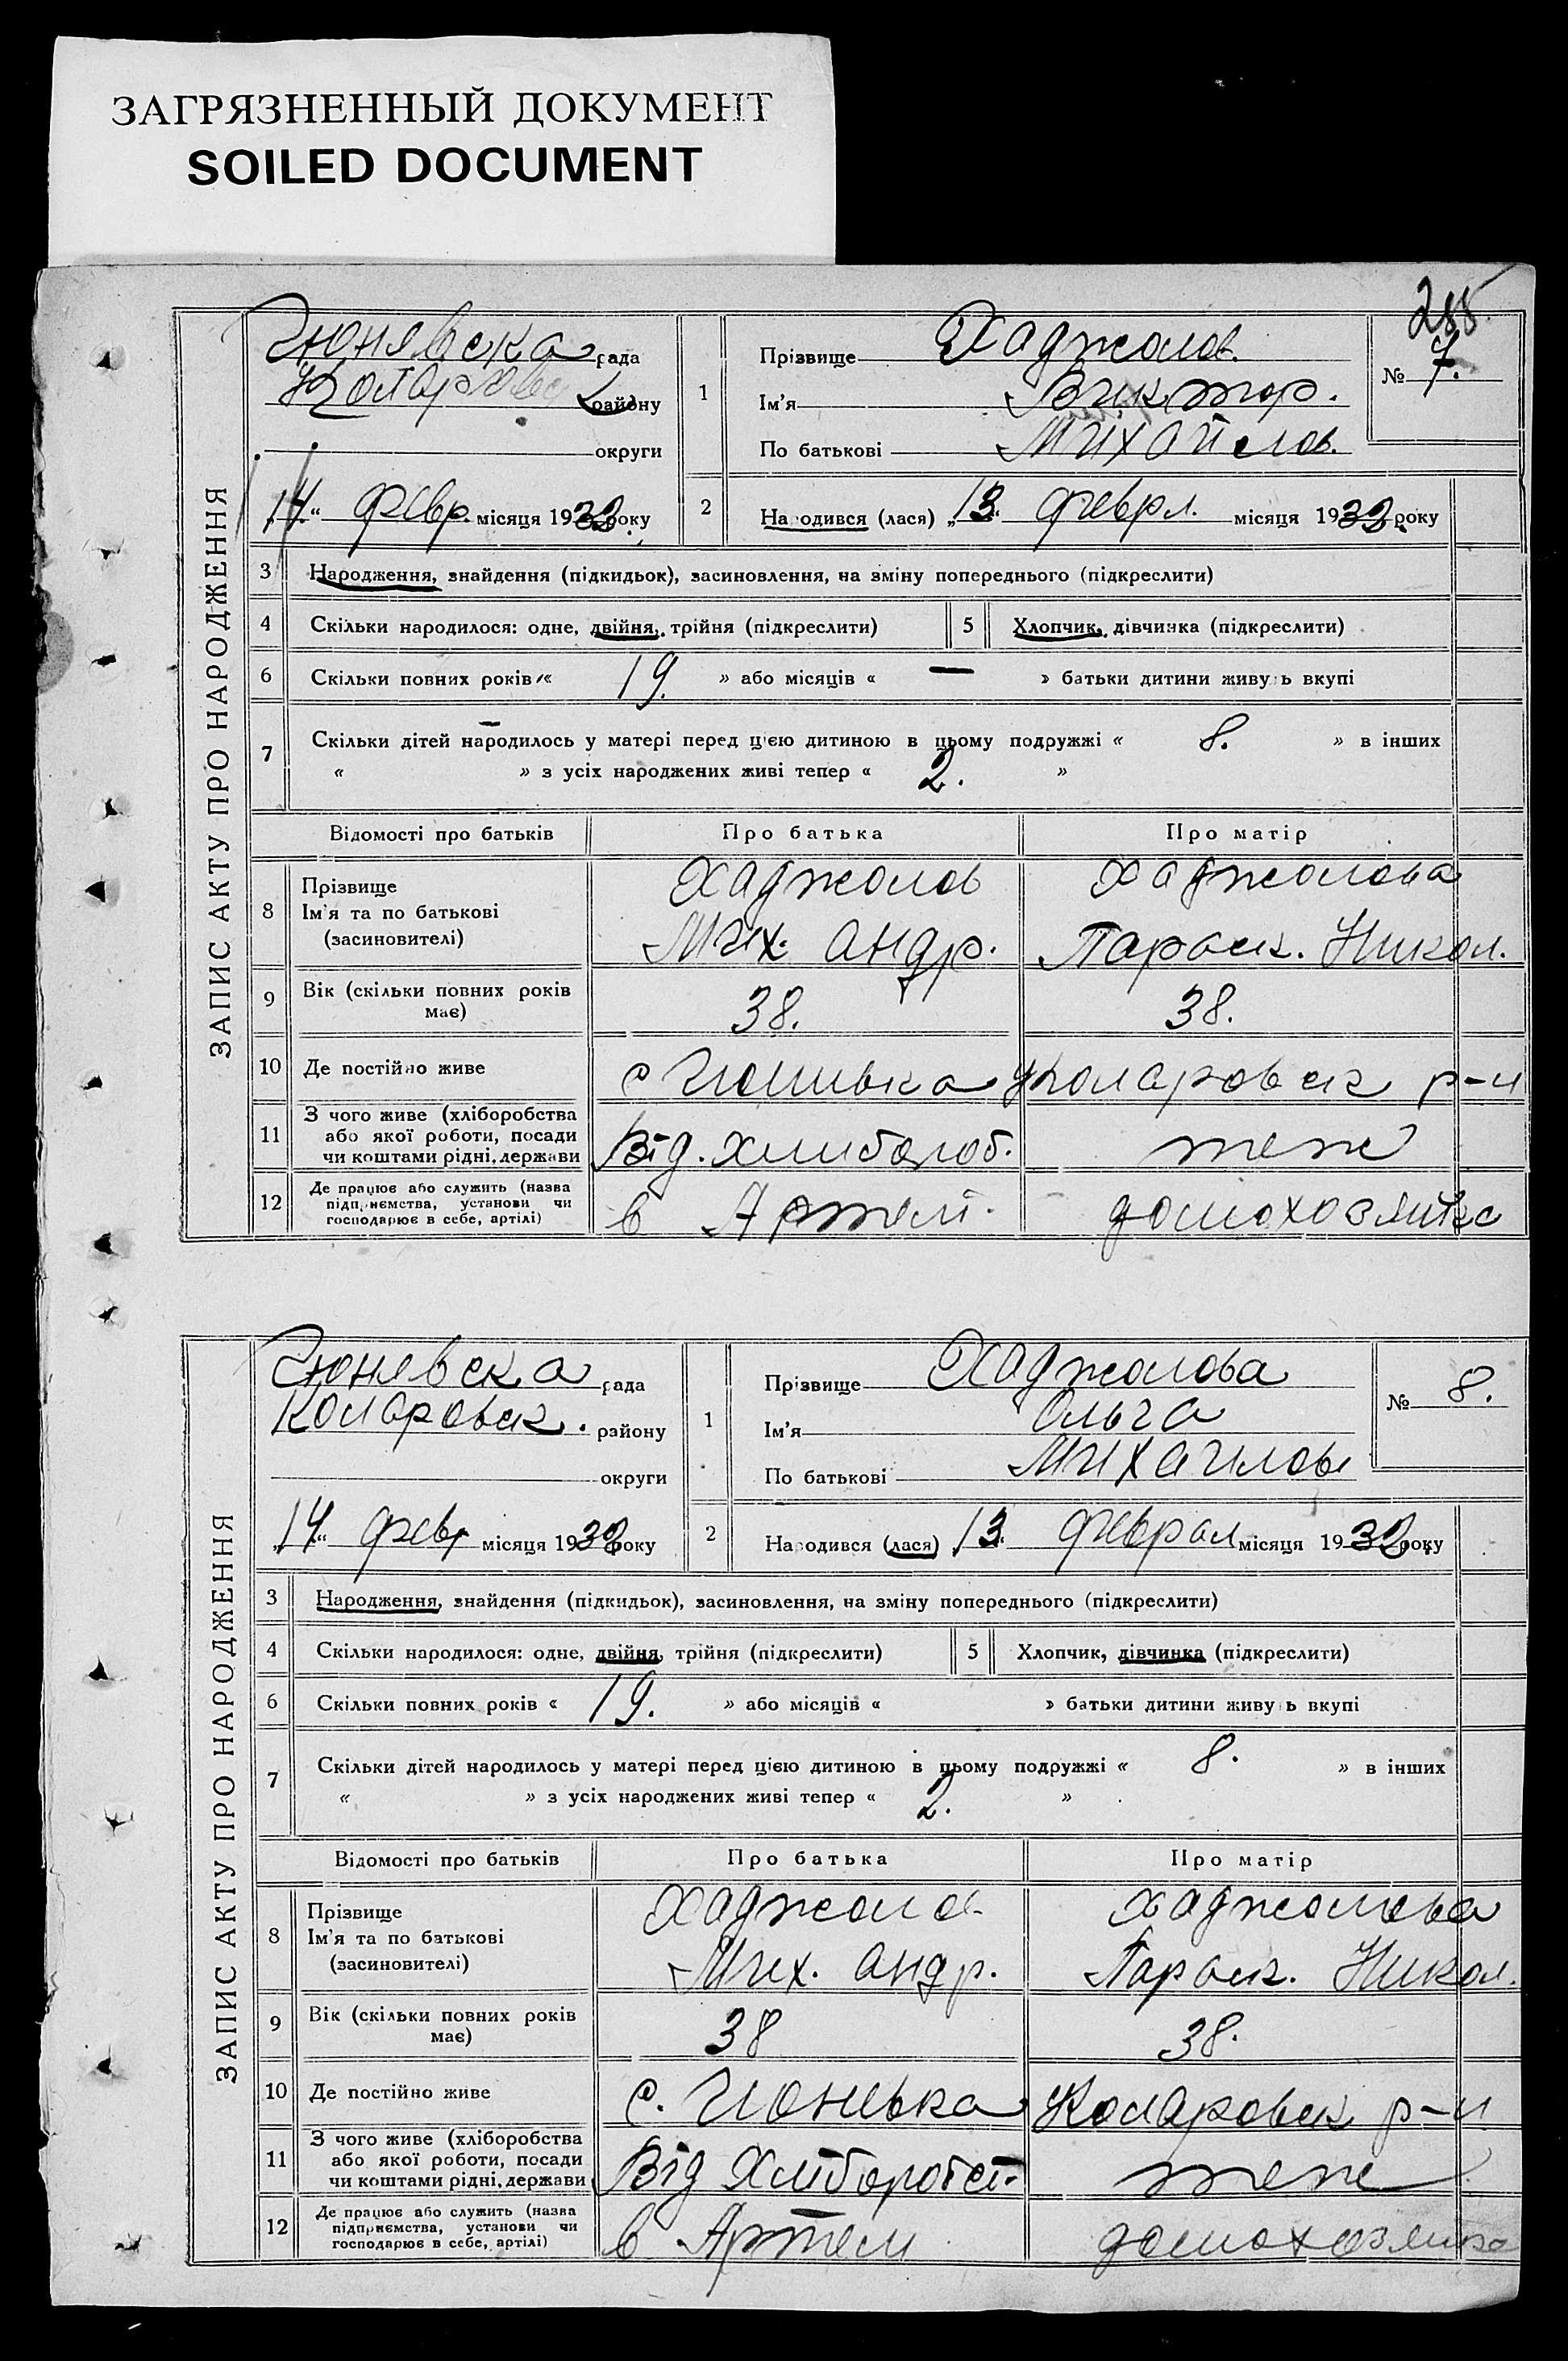 ЗАГРЯЗНЕННЫЙ ДОКУМЕНТ
SOILED DOCUMENT
ЗАПИС АКТУ ПРО НАРОДЖЕННЯ
Гюневска рада
району
округи
„14“ февр. місяця 1932 року
1 Прізвище Хаджолов.
Ім'я Виктор.
По батькові Михайлов.
№ 7.
2 Народився (лася) „13. феврл. місяця 1932 року
3 Народження, знайдення (підкидьок), засиновлення, на зміну попереднього (підкреслити)
4 Скільки народилося: одне, двійня, трійня (підкреслити) 5 Хлопчик, дівчинка (підкреслити)
6 Скільки повних років « 19. » або місяців « — » батьки дитини живуть вкупі
7 Скільки дітей народилось у матері перед цією дитиною в цьому подружжі « 8. » в інших
« » з усіх народжених живі тепер « 2. »
Відомості про батьків Про батька Про матір
8 Прізвище Хаджолов Хаджолова
Ім'я та по батькові
(засиновителі) Мих. Андр. Параск. Никол.
9 Вік (скільки повних років
має) 38. 38.
10 Де постійно живе с Гюнивка Коларовск р-н
11 З чого живе (хліборобства
або якої роботи, посади
чи коштами рідні, держави Від. хлибороб. теж
12 Де працює або служить (назва
підприємства, установи чи
господарює в себе, артілі) в Артел. домохозяйка
ЗАПИС АКТУ ПРО НАРОДЖЕННЯ
Гюневска рада
Коларовск. району
округи
„14“ февр місяця 1932 року
1 Прізвище Хаджолова
Ім'я Ольга
По батькові Михаилов
№ 8.
2 Народився (лася) „13. феврал місяця 1932 року
3 Народження, знайдення (підкидьок), засиновлення, на зміну попереднього (підкреслити)
4 Скільки народилося: одне, двійня, трійня (підкреслити) 5 Хлопчик, дівчинка (підкреслити)
6 Скільки повних років « 19. » або місяців « » батьки дитини живуть вкупі
7 Скільки дітей народилось у матері перед цією дитиною в цьому подружжі « 8. » в інших
« » з усіх народжених живі тепер « 2. »
Відомості про батьків Про батька Про матір
8 Прізвище Хаджолов Хаджолова
Ім'я та по батькові
(засиновителі) Мих. Андр. Параск. Никол.
9 Вік (скільки повних років
має) 38 38.
10 Де постійно живе с. Гюневка Коларовск р-н
11 З чого живе (хліборобства
або якої роботи, посади
чи коштами рідні, держави Від теж
12 Де працює або служить (назва
підприємства, установи чи
господарює в себе, артілі) в Артел домохозяйка